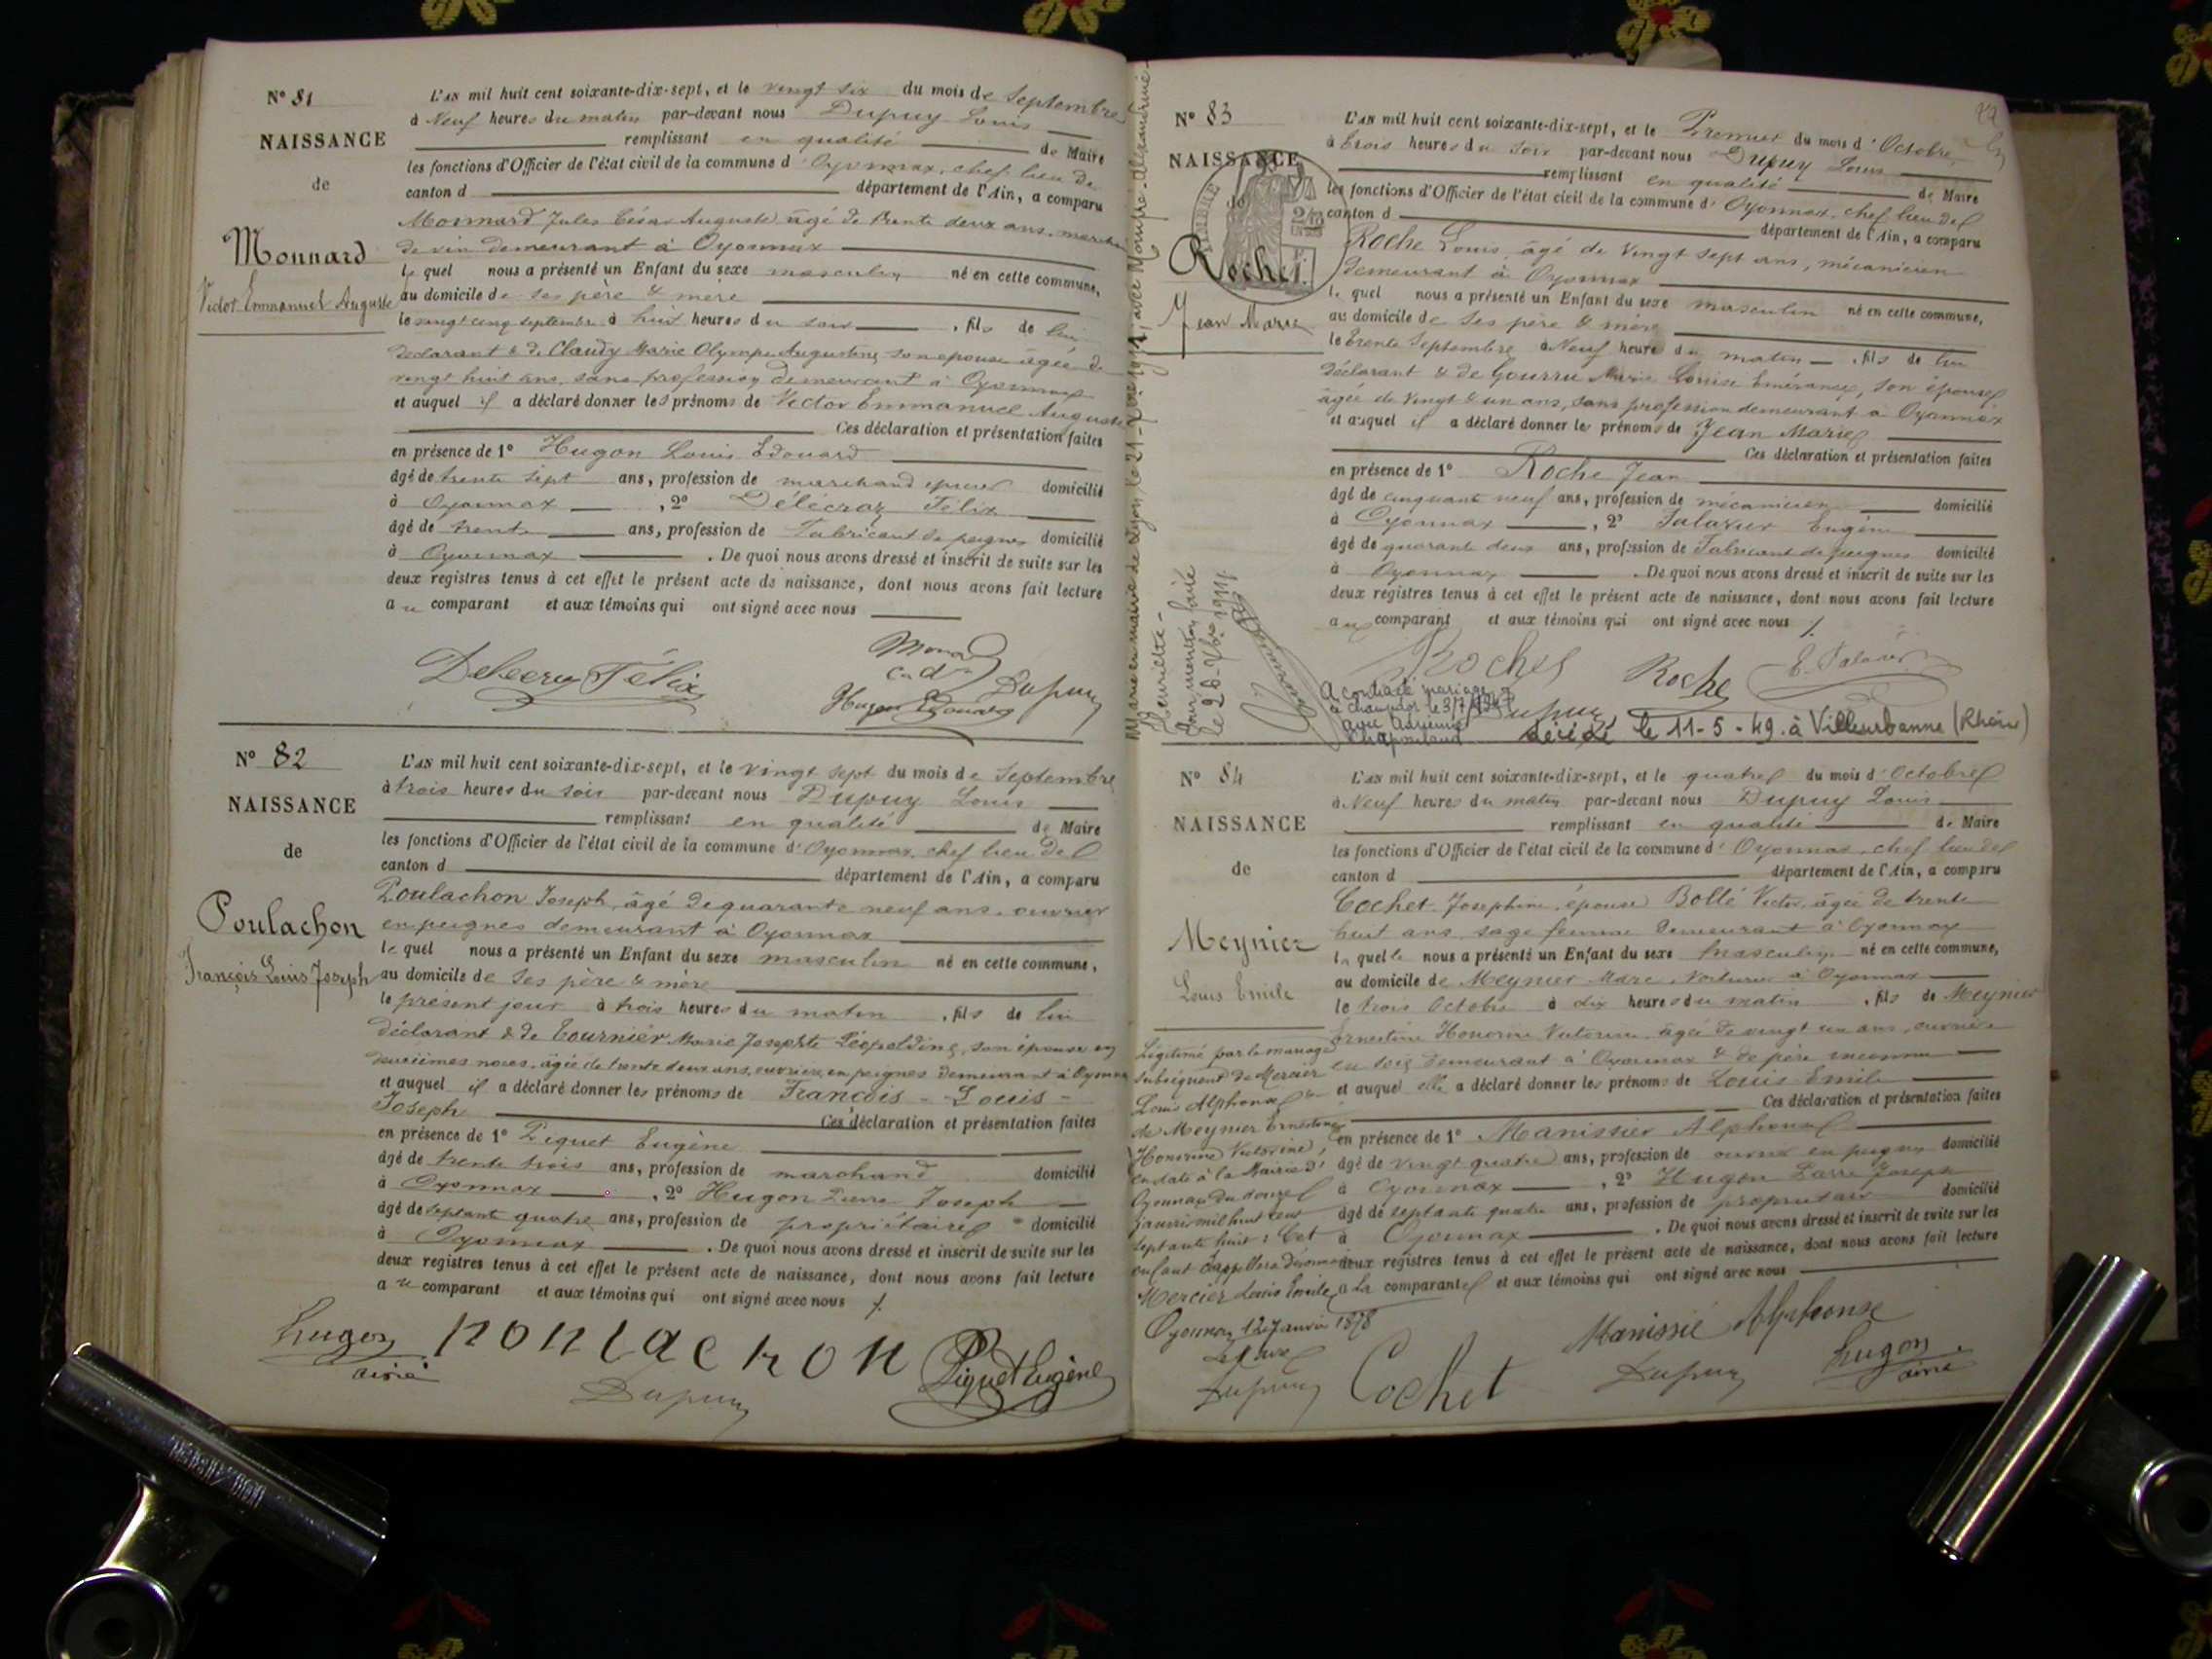 N° 81
NAISSANCE
de
Monnard
Victor Emmanuel Auguste
L'AN mil huit cent soixante-dix-sept, et le vingt six du mois de Septembre
à Neuf heures du matin par-devant nous Dupuy Louis
remplissant en qualité de Maire
les fonctions d'Officier de l'état civil de la commune d'Oyonnax, chef lieu de
canton d département de l'Ain, a comparu
Monnard Jules César Auguste âgé de trente deux ans, marchand
de vin demeurant à Oyonnax
le quel nous a présenté un Enfant du sexe masculin né en cette commune,
au domicile de ses père & mère
le vingt cinq septembre à huit heures du soir, fils de lui
déclarant & de Claudy Marie Olympe Augustine son épouse âgée de
vingt huit ans, sans profession demeurant à Oyonnax
et auquel il a déclaré donner les prénoms de Victor Emmanuel Auguste
Ces déclaration et présentation faites
en présence de 1° Hugon Louis Edouard
âgé de trente sept ans, profession de marchand épicier domicilié
à Oyonnax, 2° Délécraz Félix
âgé de trente ans, profession de Fabricant de peignes domicilié
à Oyonnax. De quoi nous avons dressé et inscrit de suite sur les
deux registres tenus à cet effet le présent acte de naissance, dont nous avons fait lecture
au comparant et aux témoins qui ont signé avec nous
Félix
Hugon Edouard
Dupuy
N° 82
NAISSANCE
de
Poulachon
François Louis Joseph
L'AN mil huit cent soixante-dix-sept, et le vingt sept du mois de Septembre
à trois heures du soir par-devant nous Dupuy Louis
remplissant en qualité de Maire
les fonctions d'Officier de l'état civil de la commune d'Oyonnax, chef lieu de
canton d département de l'Ain, a comparu
Poulachon Joseph, âgé de quarante neuf ans, ouvrier
en peignes demeurant à Oyonnax
le quel nous a présenté un Enfant du sexe masculin né en cette commune,
au domicile de ses père & mère
le présent jour à trois heures du matin, fils de lui
déclarant & de Tournier Marie Josephte Léopoldine, son épouse en
deuxièmes noces, âgée de trente deux ans, ouvrière en peignes demeurant à Oyonnax
et auquel il a déclaré donner les prénoms de François - Louis -
Joseph Ces déclaration et présentation faites
en présence de 1° Piquet Eugène
âgé de trente trois ans, profession de marchand domicilié
à Oyonnax, 2° Hugon Pierre Joseph
âgé de septante quatre ans, profession de propriétaire domicilié
à Oyonnax. De quoi nous avons dressé et inscrit de suite sur les
deux registres tenus à cet effet le présent acte de naissance, dont nous avons fait lecture
au comparant et aux témoins qui ont signé avec nous
hugon
ainé
Dupuy
Piquet Eugène
N° 83
NAISSANCE
TIMBRE
Roche
Jean Marie
Henriette -
Dont mention faite
L'AN mil huit cent soixante-dix-sept, et le Premier du mois d'Octobre
à trois heures du soir par-devant nous Dupuy Louis
remplissant en qualité de Maire
les fonctions d'Officier de l'état civil de la commune d'Oyonnax, chef lieu de
canton d département de l'Ain, a comparu
Roche Louis, âgé de vingt sept ans, mécanicien
demeurant à Oyonnax
le quel nous a présenté un Enfant du sexe masculin né en cette commune,
au domicile de ses père & mère
le trente Septembre à Neuf heures du matin, fils de lui
déclarant & de Gourru Marie Louise, son épouse
âgée de vingt & un ans, sans profession demeurant à Oyonnax
et auquel il a déclaré donner les prénoms de Jean Marie
Ces déclaration et présentation faites
en présence de 1° Roche Jean
âgé de cinquante neuf ans, profession de mécanicien domicilié
à Oyonnax, 2° Eugène
âgé de quarante deux ans, profession de Fabricant de peignes domicilié
à Oyonnax. De quoi nous avons dressé et inscrit de suite sur les
deux registres tenus à cet effet le présent acte de naissance, dont nous avons fait lecture
au comparant et aux témoins qui ont signé avec nous
Roche
Roche
A contracté mariage
Dupuy
décédé le 11-5-49. à Villeurbanne (Rhône)
N° 84
NAISSANCE
de
Meynier
Louis Emile
L'AN mil huit cent soixante-dix-sept, et le quatre du mois d'Octobre
à Neuf heures du matin par-devant nous Dupuy Louis
remplissant en qualité de Maire
les fonctions d'Officier de l'état civil de la commune d'Oyonnax, chef lieu de
canton d département de l'Ain, a comparu
Cochet Josephine, épouse Bollé Victor, âgée de trente
huit ans, sage femme demeurant à Oyonnax
la quelle nous a présenté un Enfant du sexe masculin né en cette commune,
au domicile de Meynier Marc, voiturier à Oyonnax
le trois Octobre à dix heures du matin, fils de Meynier
Ernestine Honorine Victorine, âgée de vingt un ans, ouvrière
en soie demeurant à Oyonnax & de père inconnu
et auquel elle a déclaré donner les prénoms de Louis Emile
Ces déclaration et présentation faites
en présence de 1° Manissier Alphonse
âgé de vingt quatre ans, profession de ouvrier en peignes domicilié
à Oyonnax, 2° Hugon Pierre Joseph
âgé de septante quatre ans, profession de propriétaire domicilié
à Oyonnax. De quoi nous avons dressé et inscrit de suite sur les
deux registres tenus à cet effet le présent acte de naissance, dont nous avons fait lecture
à la comparante et aux témoins qui ont signé avec nous
Légitimé par le mariage
subséquent de Mercier
Louis Alphonse &
de Meynier Ernestine
Honorine Victorine,
en date à la Mairie d'
Oyonnax du douze
janvier mil huit cent
septante huit : Cet
enfant s'appellera désormais
Mercier Louis Emile
Oyonnax, 12 Janvier 1878
Le Maire
Dupuy
Cochet
Manissié Alphonse
Dupuy
hugon
ainé